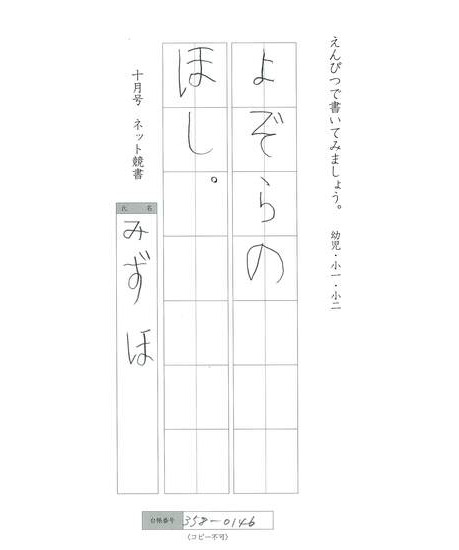 えんぴつで書いてみましょう。 幼児・小一・小二
よぞらの
ほし。
十月号 ネット競書
氏名
みずほ
台帳番号 358-0146
(コピー不可)